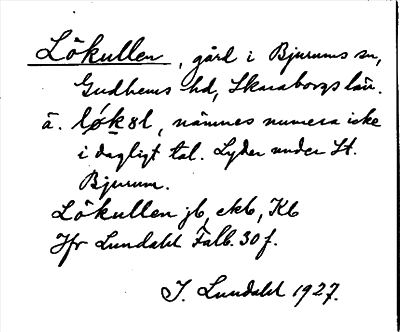 Lökullen, gård i Bjurums sn,
Gudhems hd, Skaraborgs län.
ä. løkəl, nämnes numera icke
i dagligt tal. Lyder under St.
Bjurum.
Lökullen jb, ekb, Kb
Jfr Lundahl Falb. 30 f.
I. Lundahl 1927.